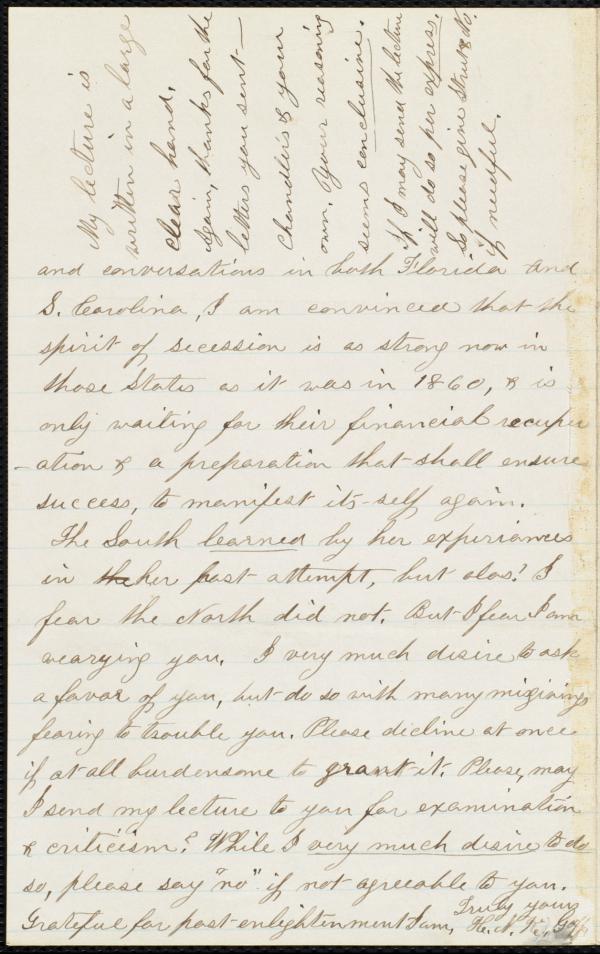 and conversations in both Florida and
S. Carolina, I am convinced that the
spirit of secession is as strong now in
those States as it was in 1860, & is
only waiting for their financial recuper
-ation & a preparation that shall ensure
success, to manifest its-self again.
The South learned by her experiances
in the her past attempt, but alas! I
fear the North did not. But I fear I am
wearying you. I very much desire to ask
a favor of you, but do so with many misgivings
fearing to trouble you. Please decline at once
if at all burdensome to grant it. Please, may
I send my lecture to you for examination
& criticism? While I very much desire to do
so, please say "no" if not agreeable to you.
Grateful for past enlightenment I am,
Truly yours
H. N.
My lecture is
written in a large
clear hand.
Again, thanks for the
letters you sent—
Chandler's & your
own. Your reasoning
seems conclusive.
If I may send the lecture
will do so per express.
So please give Street & No.
if needful.